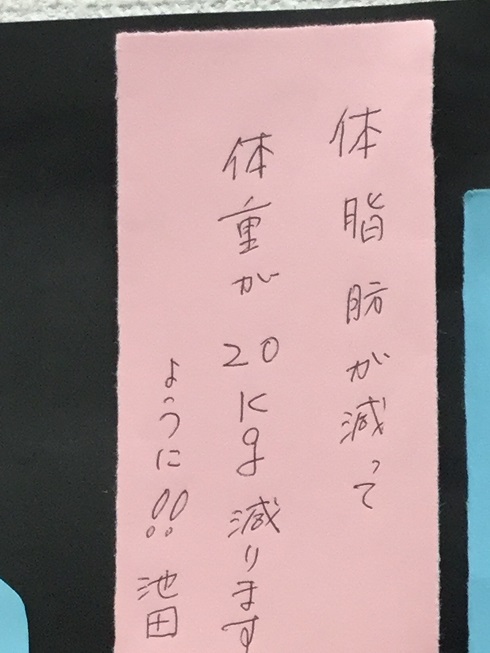 体脂肪が減って
体重が20Kg減ります
ように!!
池田